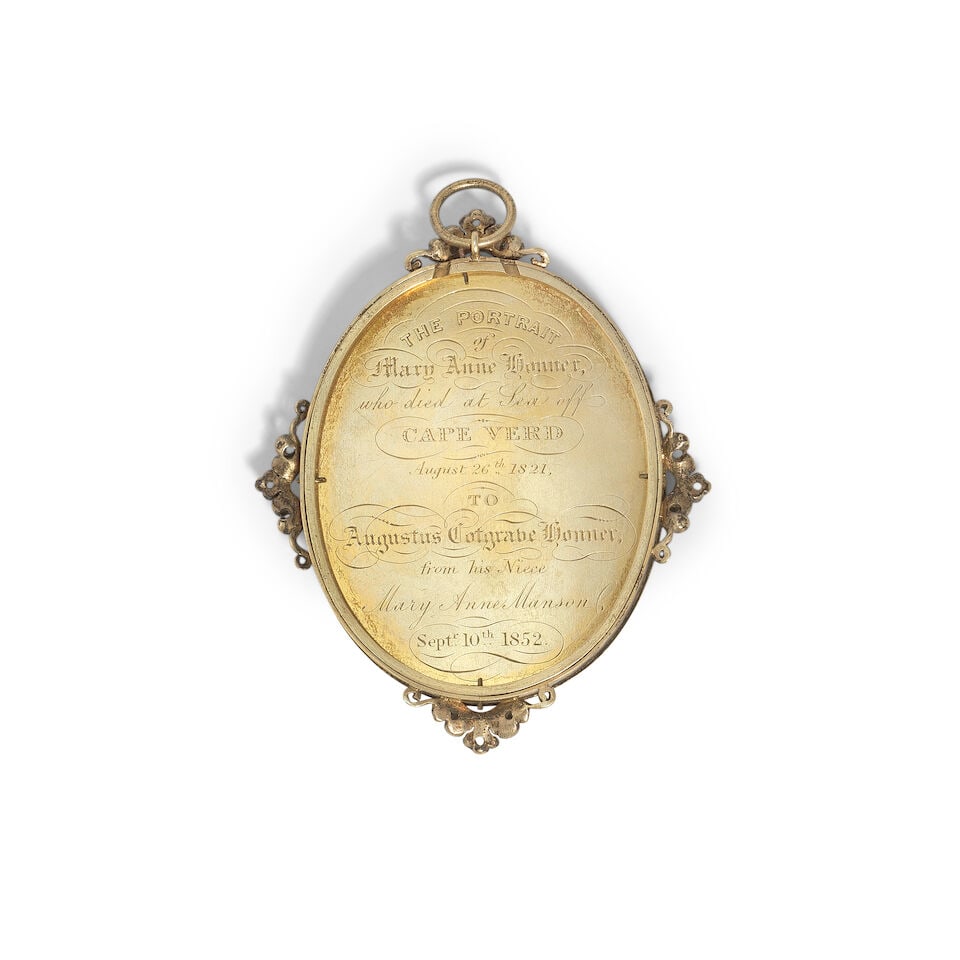 THE PORTRAIT
of
Mary Anne Honner,
who died at Sea off
CAPE VERD
August 26th 1821,
TO
Augustus Cotgrave Honner,
from his Niece
Mary Anne Manson
Septr 10th 1852.